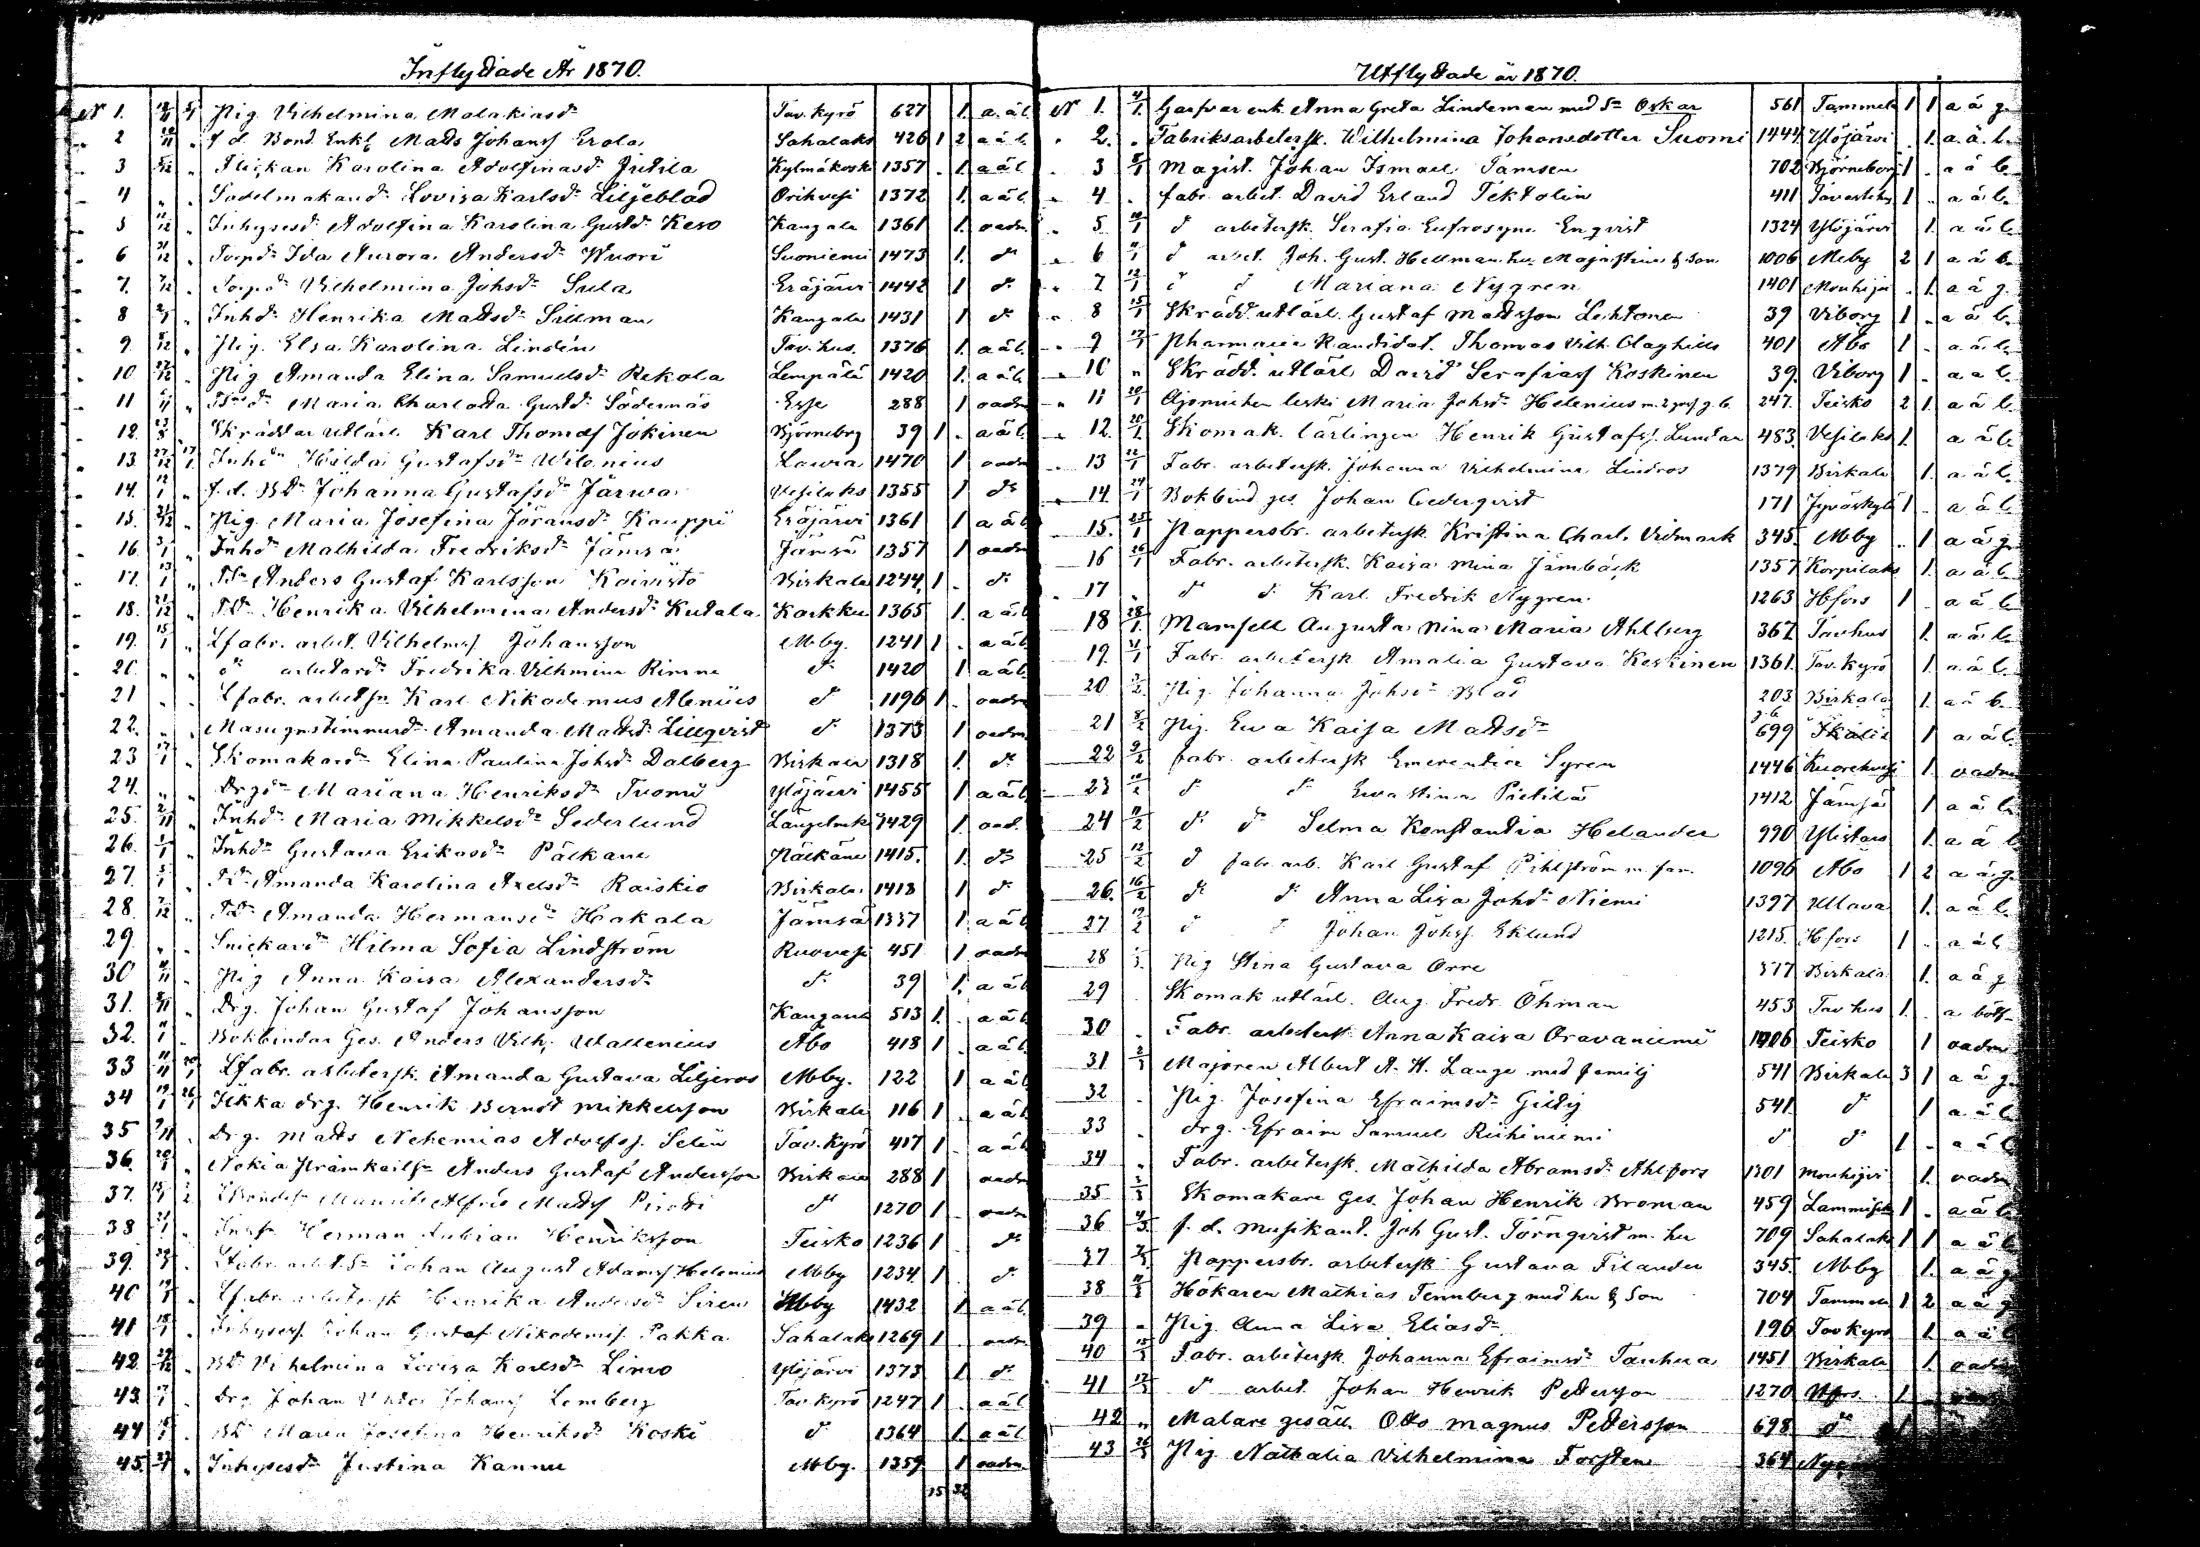 Inflyttade År 1870.
N 1. Pig. Vilhelmina Malakiasdr Tav.kyrö 627 1. a.ä.b.
2 f. d. Bond. Enkl. Matts Johanss Erola Sahalaks 426 1 2 a ä b.
3 Flickan Karolina Adolfinasdr Jutila Kylmäkosk 1357 1. a ä b.
4 Sadelmakaredr Lovisa Karlsdr Liljeblad Orihvesi 1372 1. a ä b.
5 Inhysesdr Adolfina Karolina Gustdr Keso Kangala 1361 1. oadm.
6 Torpdr Ida Aurora Andersdr Wuori Suoniemi 1473 1. dr
7. Torpdr Vilhelmina Johsdr Sula Eräjärvi 1442 1 dr
8 Inhdr Henrika Mattsdr Sillman Kangala 1431 1 dr
9. Pig. Elsa Karolina Lindén Tav.hus. 1376 1. a ä b.
10 Pig Amanda Elina Samuelsdr Rekola Lempälä 1420 1. a ä b.
11 Maria Charlotta Gustdr Södernäs Esse 288 1 oadm
12. Skräddar utlärl. Karl Thomass Jokinen Björnebrg 39 1 a ä b.
13. Inhdr Hilda Gustafsdr Wilenius Lauvia 1470 1 oadm
14. f. d. Bdr Johanna Gustafsdr Järwa Vesilaks 1355 1 dr
15. Pig. Maria Josefina Jöransdr Kauppi Eräjärvi 1361 1 a ä b
16. Inhdr Mathilda Fredriksdr Jämsä Jämsä 1357 1 oadm
17. Anders Gustaf Karlsson Koivisto Birkala 1244 1 dr
18. Tdr Henrika Vilhelmina Andersdr Kutala Karkku 1365 1. a ä b
19. Lfabr. arbet. Vilhelms Johansson Mby. 1241 1 a ä b
20. dr arbetaredr Fredrika Vilhmina Rimne dr 1420 1 a ä b.
21 Lfabr. arbetsn Karl Nikodemus Alenius dr 1196 1 oadm
22. Masugnstimmrdr Amanda Mattsdr Lillqvist dr 1373 1 oadm
23 Skomakaredr Elina Paulina Johsdr Dalberg Birkala 1318 1. dr
24. Drgdr Mariana Henriksdr Tuomi Ylöjärvi 1455 1 a ä b
25. Inhdr Maria Mikkelsdr Sederlund Längelmk 1429 1. oad.
26. Inhdr Gustava Eriksdr Pälkäne Pälkäne 1415. 1. dr
27. Tdr Amanda Karolina Axelsdr Raiskio Birkala 1418 1 dr
28. Tdr Amanda Hermansdr Hakala Jämsä 1337 1 a ä b
29. Snickaredr Hilma Sofia Lindström Ruovesi 451 1 oadm
30 Pig Anna Kaisa Alexandersdr dr 39 1. a ä b
31. Drg. Johan Gustaf Johansson Kangasa 513 1. a ä b
32. Bokbindar Ges. Anders Vilh. Wallenius Åbo 418 1 a ä b
33 Lfabr. arbetersk. Amanda Gustava Liljeros Mby. 122 1 a ä b
34 Ilkka drg. Henrik Berndt Mikkelsson Birkala 116 1 a ä b
35 Drg. Matts Nehemias Adolfss. Selin Tav.kyrö 417 1 a ä b
36. Nokia Anders Gustaf Andersson Birkala 288 1 oadm
37. Alfred Mattss dr 1270 1 oadm
38 Herman Henriksson Teisko 1236 1 dr
39. Johan August Adamss Helenius Mby 1234 1 dr
40 Lfabr. arbetersk Henrika Andersdr Siren Mby 1432 1 a ä b
41 Inhysess Johan Gustaf Nikodemis. Pakka Sahalaks 1269 1 oadm
42. Bdr Vilhelmina Lovisa Karlsdr Limo Ylöjärvi 1373 1. dr
43. Drg Johan Viktor Johanss Lemberg Tav.kyrö 1247 1 a ä b
44 Bdr Maria Josefina Henriksdr Koski dr 1364 1. a ä b
45. Inhysesdr Justina Kannu Mby. 1359 1 oadm
15 32
Utflyttade år 1870.
N 1. Garfvar enk. Anna Greta Lindeman med Sn Oskar 561 Tammela 1 1 a ä g.
2. Fabriksarbetersk. Wilhelmina Johansdotter Suomi 1444 Ylöjärvi 1. a. ä. b.
3 Magist. Johan Ismael Tamsen 702 Björneborg 1 a ä b
4 fabr. arbet. David Erland Tektolin 411 Tavastehs 1 a ä b.
5 dr arbetersk. Serafia Eufrosyne Enqvist 1324 Ylöjärvi 1. a ä b.
6 dr arbet. Joh. Gust. Hellman hu Maja Stina & son 1006 Mby 2 1 a ä b.
7 dr dr Mariana Nygren 1401 Mouhijär 1. a ä g.
8 Skrädd. utlärl. Gustaf Mattsson Lehtonen 39 Viborg 1 a ä b.
9 Pharmacie Kandidat. Thomas Vilh. Clayhills 401 Åbo 1 a ä b.
10 Skrädd. utlärl David Serafiass Koskinen 39. Viborg 1 a ä b.
11 leski Maria Johsdr Helenius 247. Teisko 2 1 a ä b.
12. Skomak. lärlingen Henrik Gustafss. Lundan 483. Vesilaks 1. a ä b.
13 Fabr. arbetersk. Johanna Vilhelmina Lindros 1379 Birkala 1. a ä b.
14 Bokbind. ges. Johan Cederqvist 171 Jyväskylä 1 a ä b.
15. Pappersbr. arbetersk Kristina Charl. Vidmark 345. Mby 1 a ä g.
16 Fabr. arbetersk. Kaisa Mina Jämbäck 1357 Korpilaks 1. a ä b.
17 dr dr Karl Fredrik Nygren 1263 Hfors 1 a ä b
18 Mamsell Augusta Nina Maria Ahlberg 367 Tavhus 1. a ä b.
19. Fabr. arbetersk Amalia Gustava Keskinen 1361. Tav.kyrö 1. a ä b.
20 Pig. Johanna Johsdr Blad 203 Birkala 1. a ä b.
21 Pig. Eva Kaisa Mattsdr 699 Ikalis 1 a ä b.
22 fabr. arbetersk Emerentia Syren 1446 Kuorehvesi 1. oadm
23 dr dr Eva Stina Pietilä 1412 Jämsä 1 a ä b.
24 dr dr Selma Konstantia Helander 990 Ylistaro 1. a ä b
25 dr fabr. arb. Karl Gustaf Pihlström m. fam. 1096 Åbo 1 2 a ä g.
26. dr dr Anna Lisa Johdr Niemi 1397 Ullava 1. a ä b.
27 dr dr Johan Johss. Eklund 1215. Hfors 1 a ä b
28 Pig Stina Gustava Orre 517 Birkala 1. a ä g
29 Skomak utlärl. Aug. Fredr. Öhman 453 Tavhus 1. a bötf.
30 Fabr. arbetersk. Anna Kaisa Oravaniemi 1406 Teisko 1 oadm
31 Majoren Albert A. H. Lange med familj 541 Birkala 3 1 a ä g
32 Pig. Josefina Efraimsdr Gidig 541. dr 1 a ä b
33 drg. Efraim Samuel Riihiniemi dr dr 1 a ä b
34 Fabr. arbetersk. Mathilda Abramsdr Ahlfors 1301 Mouhijvi 1. oadm
35 Skomakare ges. Johan Henrik Broman 459 Lammisk 1 a ä b
36 f. d. Musikant. Joh Gust. Törnqvist m. hu 709 Sahalaks 1 1 a ä b
37 Pappersbr. arbetersk Gustava Filander 345. Mby 1. a ä g
38 Hökaren Mathias Tennberg med hu & Son 704 Tammela 1 2 a ä g
39 Pig. Anna Lisa Eliasdr 196 Tavkyrö 1. a ä b
40 Fabr. arbetersk Johanna Efraimsdr Tanhua 1451 Birkala 1. oadm
41 dr arbet. Johan Henrik Pettersson 1270 Hfors 1
42 Malare gesäll Otto Magnus Pettersson 698 dr 1
43 Pig Nathalia Vilhelmina Forsten 364